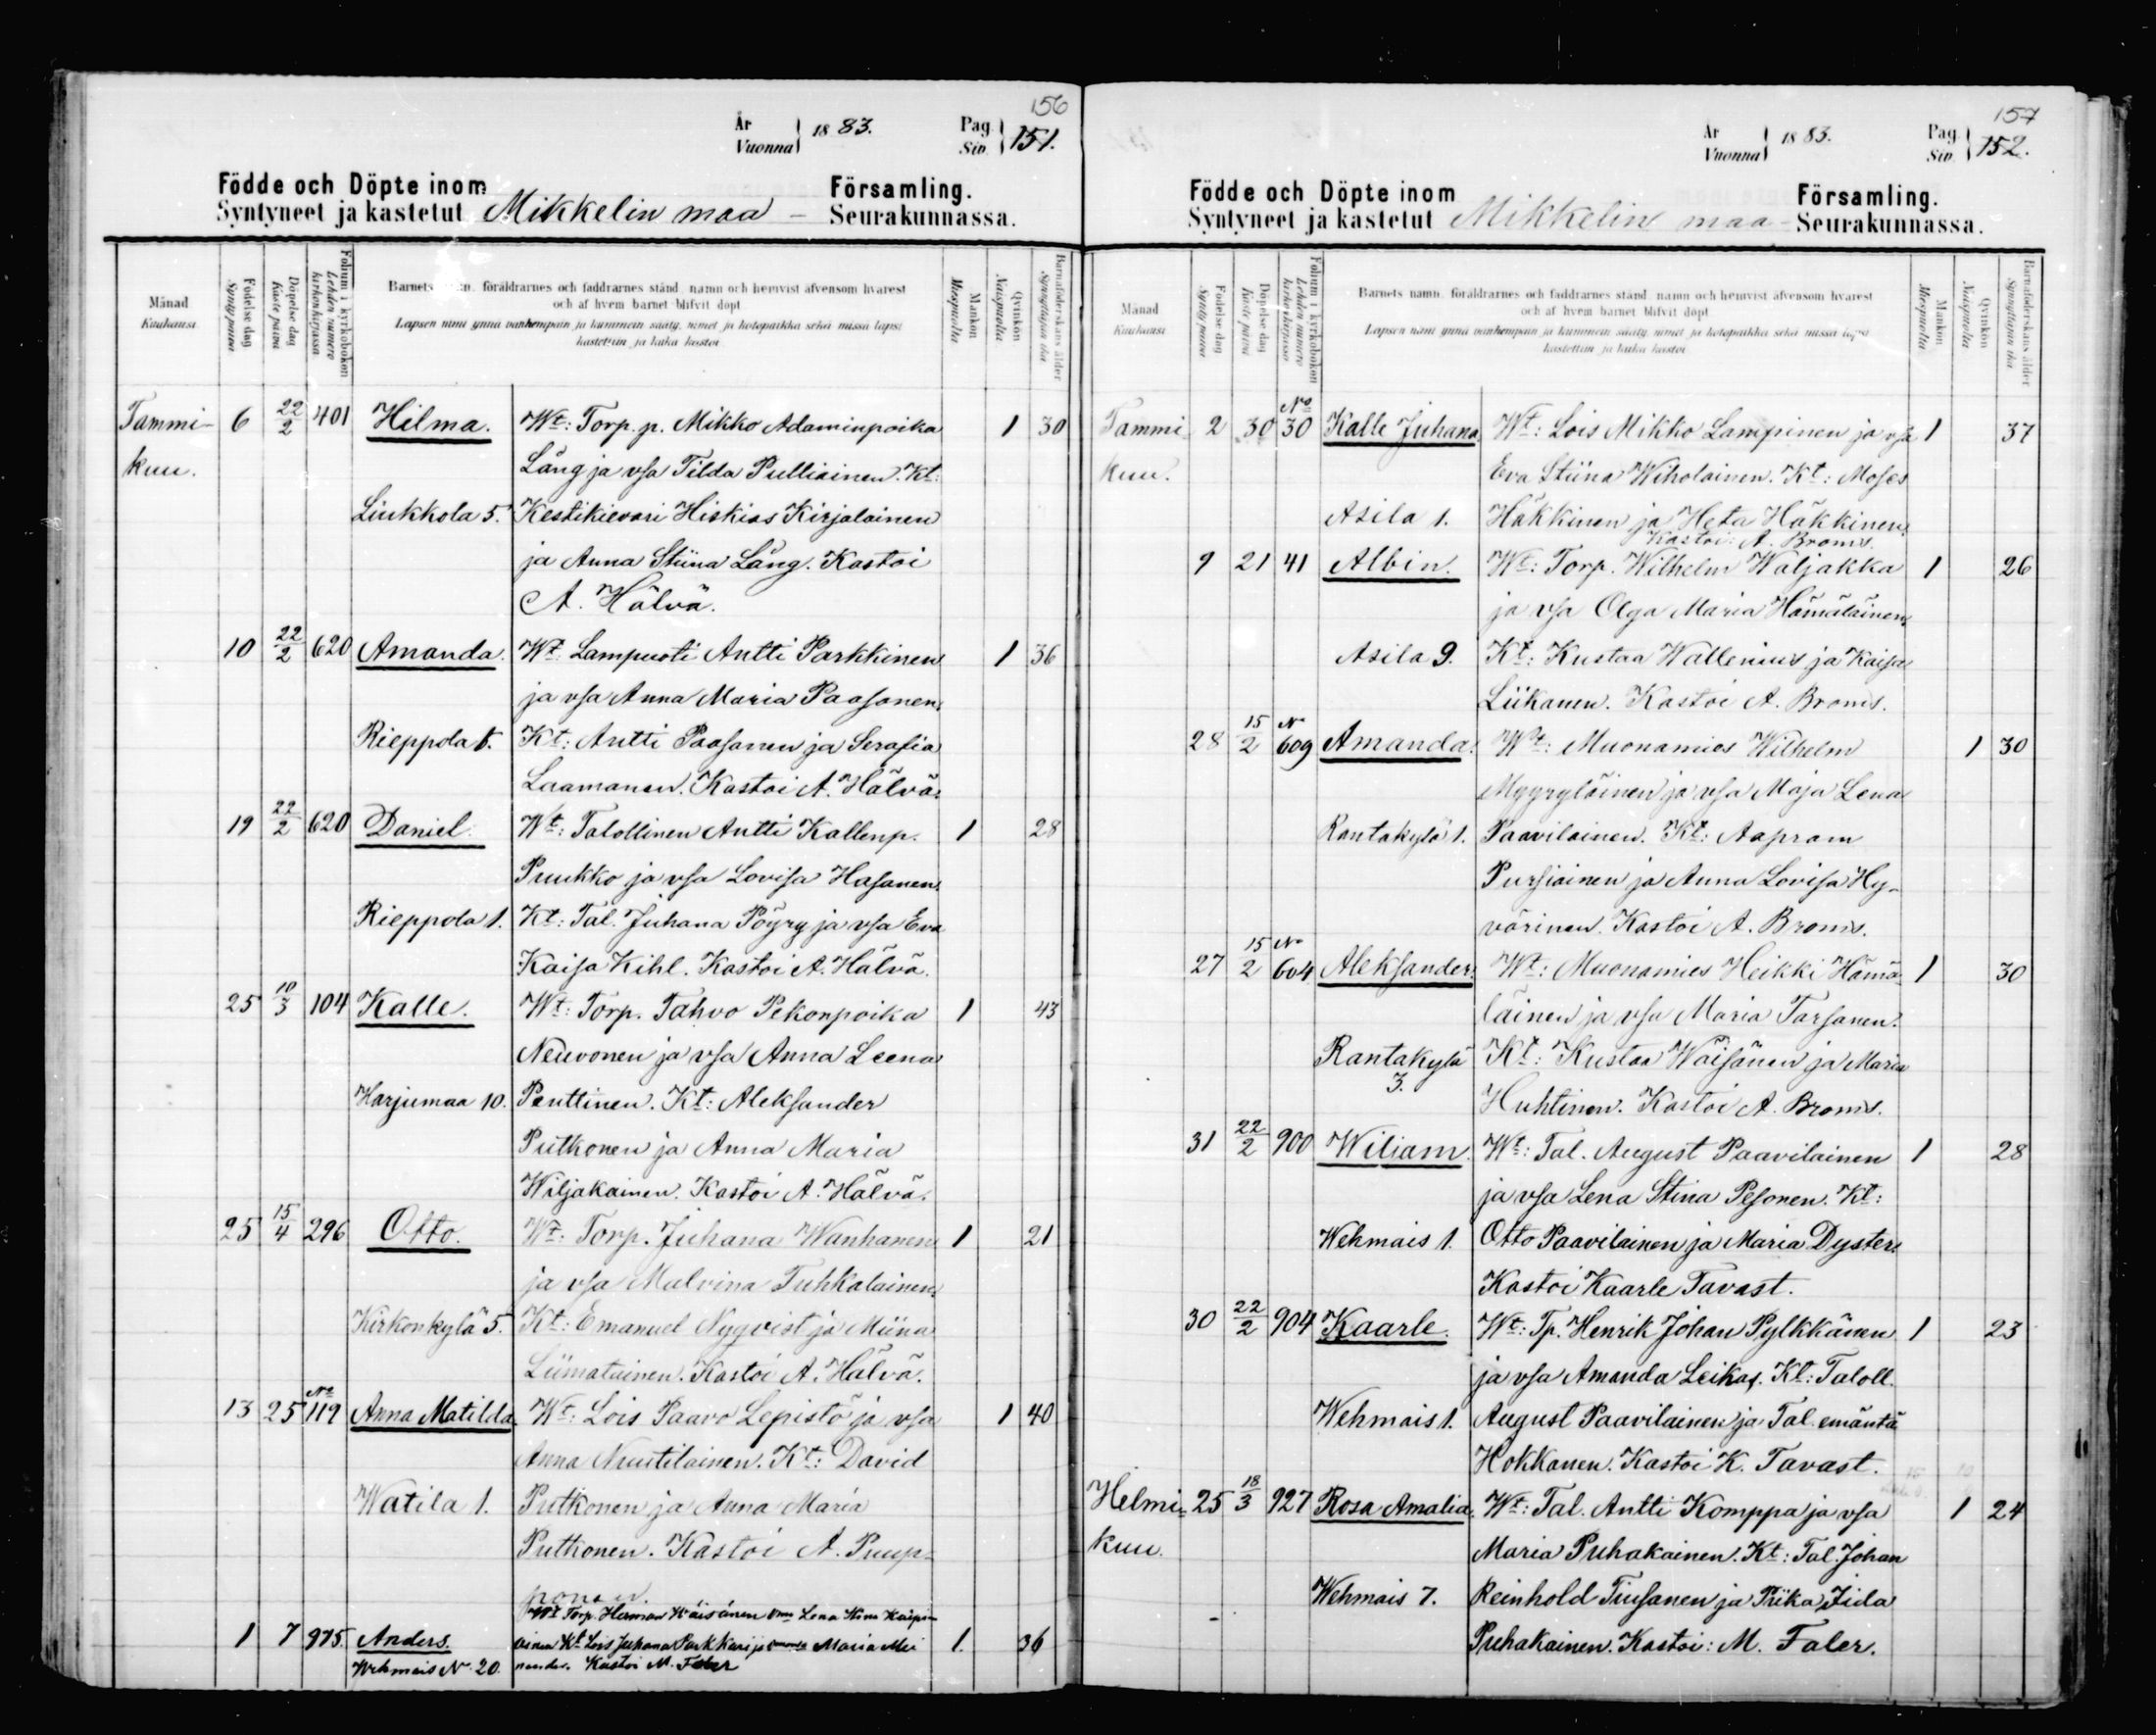 156
År
Vuonna
1883.
Pag.
Siv.
151.
Födde och Döpte inom
Syntyneet ja kastetut
Mikkelin maa -
Församling.
Seurakunnassa.
Månad
Kuukausi
Födelse dag
Synty päivä
Döpelse dag
Kaste päivä
Folium i kyrkoboken
Lehden numero kirkonkirjassa
Barnets namn, föräldrarnes och faddrarnes stånd, namn och hemvist äfvensom hvarest
och af hvem barnet blifvit döpt
Lapsen nimi ynnä vanhempain ja kummein sääty, nimet ja kotopaikka sekä missä lapsi
kastettiin ja kuka kastoi
Mankön
Miespuolia
Qvinkön
Naispuolia
Barnaföderskans ålder
Synnyttäjän ikä
Tammi- 6 22/2 401 Hilma. Wt: Torp. p. Mikko Adaminpoika 1 30
kuu. Lång ja vsa Tilda Pulliainen. Kt:
Liukkola 5. Kestikievari Hiskias Kirjalainen
ja Anna Stiina Lång. Kastoi
A. Hälvä.
10 22/2 620 Amanda. Wt: Lampuoti Antti Parkkinen 1 36
ja vsa Anna Maria Paasonen.
Rieppola 5. Kt: Antti Paasonen ja Serafia
Laamanen. Kastoi A. Hälvä.
19 22/2 620 Daniel. Wt: Talollinen Antti Kallenp. 1 28
Puukko ja vsa Lovisa Hasanen.
Rieppola 1. Kt: Tal. Juhana Pöyry ja vsa Eva
Kaisa Kihl. Kastoi A. Hälvä.
25 10/3 104 Kalle. Wt: Torp. Tahvo Pekonpoika 1 43
Neuvonen ja vsa Anna Leena
Harjumaa 10. Penttinen. Kt: Aleksander
Putkonen ja Anna Maria
Wiljakainen. Kastoi A. Hälvä.
25 15/4 296 Otto. Wt: Torp. Juhana Wanhanen 1 21
ja vsa Malvina Tuhkalainen.
Kirkonkylä 5. Kt: Emanuel Nyqvist ja Miina
Liimatainen. Kastoi A. Hälvä.
13 25 No 119 Anna Matilda. Wt: Lois Paavo Lepistö ja vsa 1 40
Anna Nuutilainen. Kt: David
Watila 1. Putkonen ja Anna Maria
Putkonen. Kastoi A. Puup-
ponen.
Wt Torp. Herman Häisänen Lena Stina
1 7 975. Anders. Kt Lois Juhana Parkkari ja Maria 1. 36
Wehmais No 20. Kastoi M. Faler
157
År
Vuonna
1883.
Pag.
Siv.
152.
Födde och Döpte inom
Syntyneet ja kastetut
Mikkelin maa -
Församling.
Seurakunnassa.
Månad
Kuukausi
Födelse dag
Synty päivä
Döpelse dag
Kaste päivä
Folium i kyrkoboken
Lehden numero kirkonkirjassa
Barnets namn, föräldrarnes och faddrarnes stånd, namn och hemvist äfvensom hvarest
och af hvem barnet blifvit döpt
Lapsen nimi ynnä vanhempain ja kummein sääty, nimet ja kotopaikka sekä missä lapsi
kastettiin ja kuka kastoi
Mankön
Miespuolia
Qvinkön
Naispuolia
Barnaföderskans ålder
Synnyttäjän ikä
Tammi- 2 30 No 30 Kalle Juhana Wt: Lois Mikko Lampinen ja vsa 1 37
kuu. Eva Stiina Wiholainen. Kt: Moses
Asila 1. Häkkinen ja Heta Häkkinen.
Kastoi: A. Broms.
9 21 41 Albin. Wt: Torp. Wilhelm Waljakka 1 26
ja vsa Olga Maria Hämäläinen.
Asila 9. Kt: Kustaa Wallenius ja Kaisa
Liikanen. Kastoi A. Broms.
28 15/2 No 609 Amanda. Wt: Muonamies Wilhelm 1 30
Myyryläinen ja vsa Maja Lena
Rantakylä 1. Paavilainen. Kt: Aapram
Pursiainen ja Anna Lovisa Hy-
värinen. Kastoi A. Broms.
27 15/2 No 604 Aleksander. Wt: Muonamies Heikki Hämä- 1 30
läinen ja vsa Maria Tarsanen.
Rantakylä Kt: Kustaa Wäisänen ja Maria
3. Huhtinen. Kastoi A. Broms.
31 22/2 900 Wiliam. Wt: Tal. August Paavilainen 1 28
ja vsa Lena Stina Pesonen. Kt:
Wehmais 1. Otto Paavilainen ja Maria Dyster.
Kastoi Kaarle Tavast.
30 22/2 904 Kaarle. Wt: Tp. Henrik Johan Pylkkänen 1 23
ja vsa Amanda Leikas. Kt: Taloll.
Wehmais 1. August Paavilainen ja Tal. emäntä
Hokkanen. Kastoi K. Tavast.
Helmi- 25 18/3 927 Rosa Amalia. Wt: Tal. Antti Komppa ja vsa 1 24
kuu. Maria Puhakainen. Kt: Tal. Johan
Wehmais 7. Reinhold Tiusanen ja Piika Iida
Puhakainen. Kastoi: M. Faler.